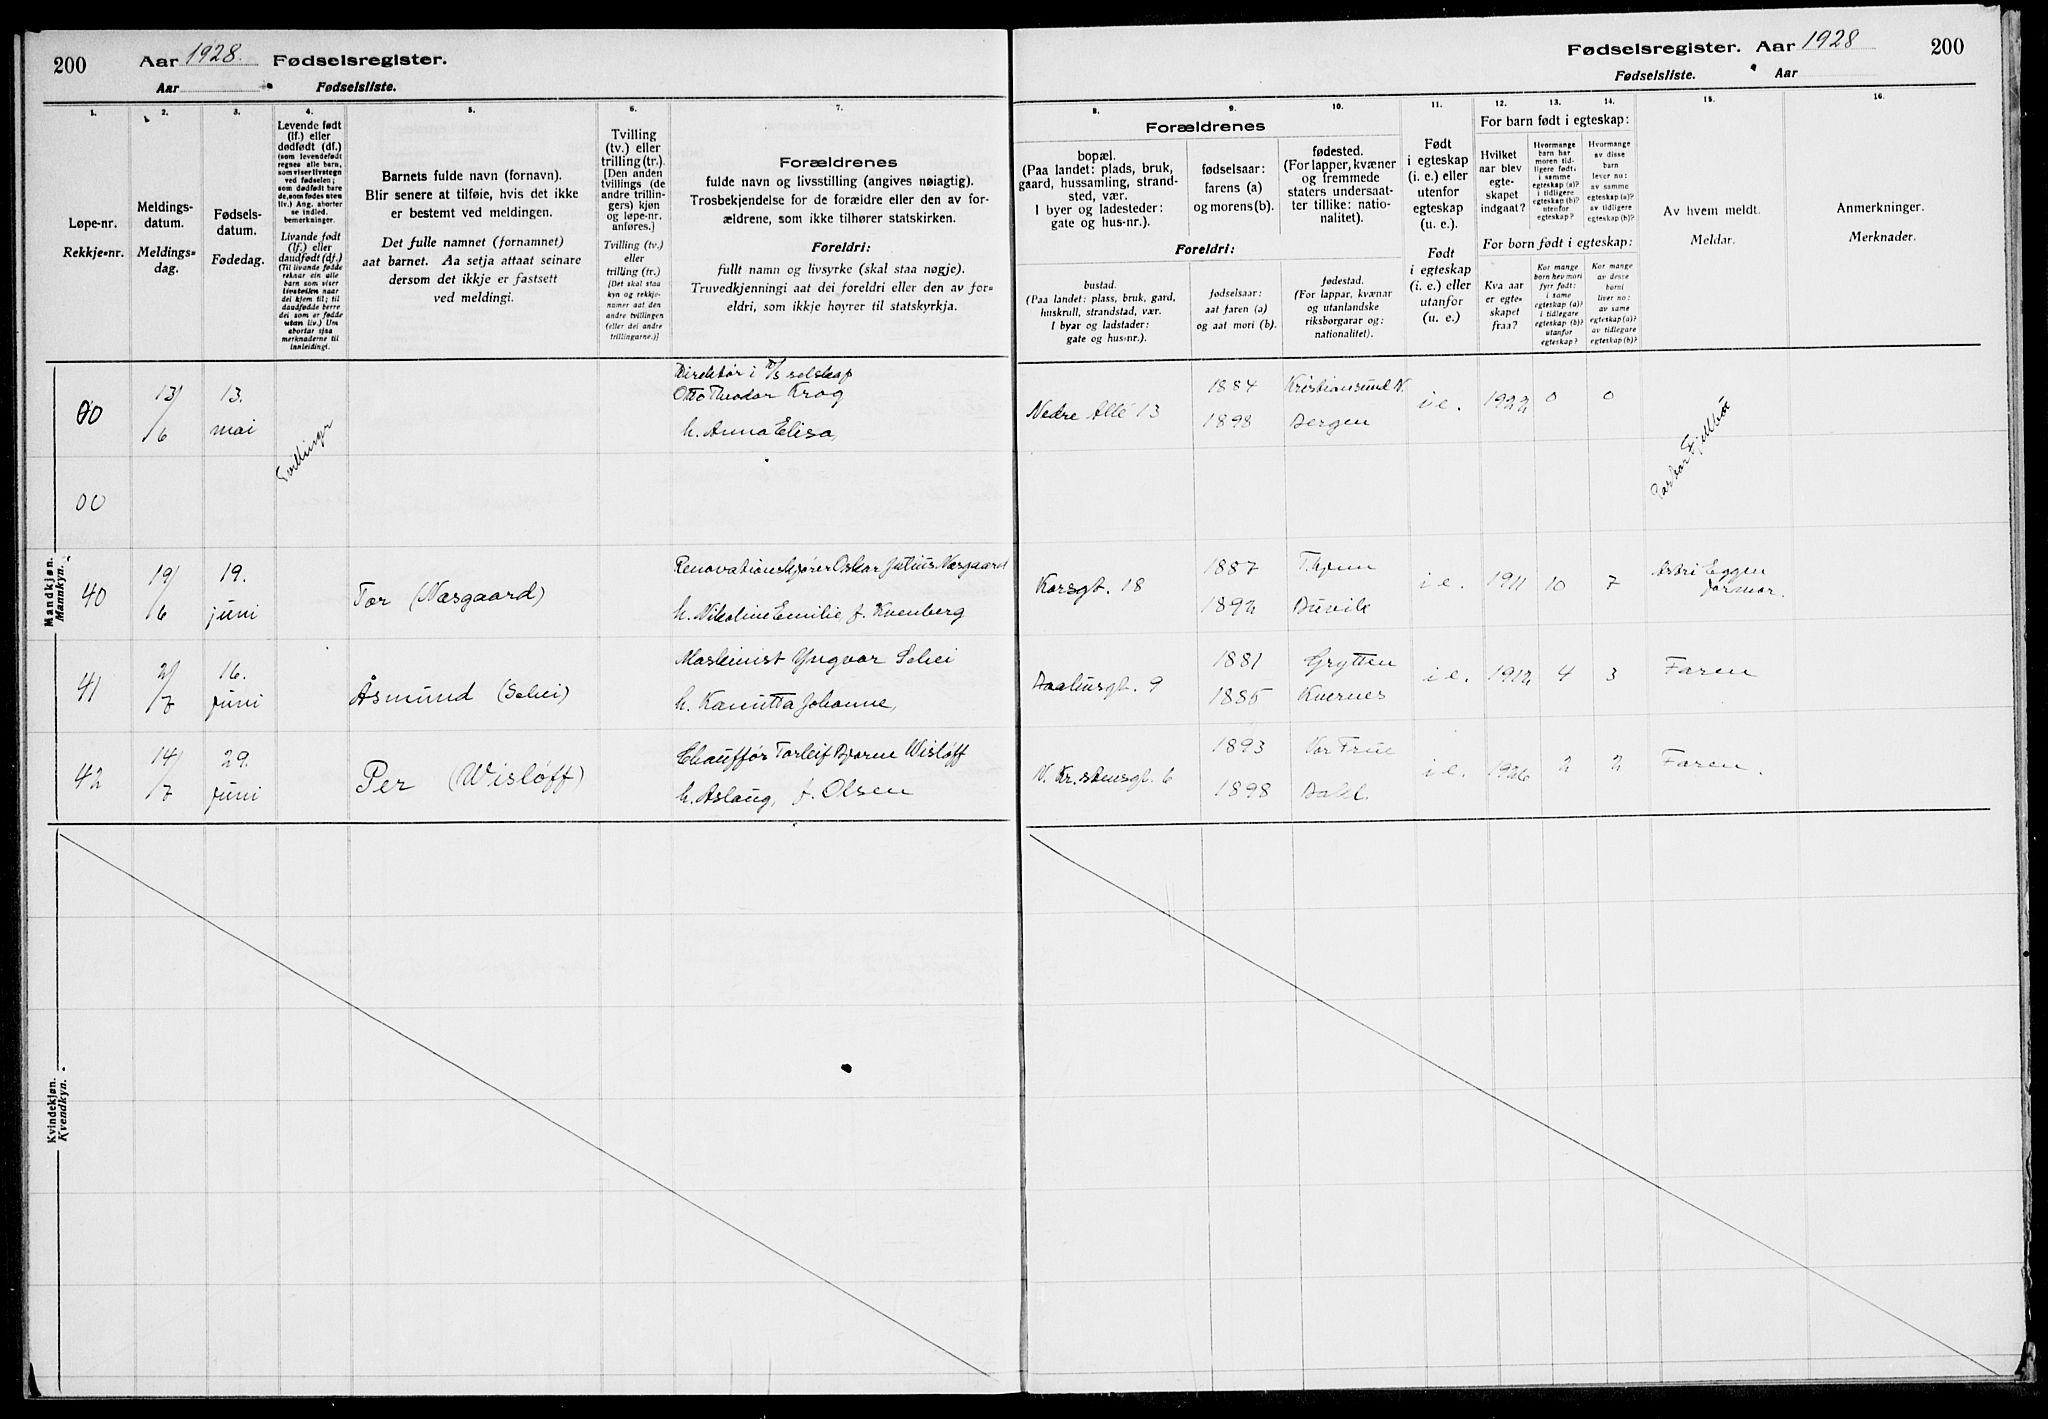 200 Aar 1928. Fødselsregister.
Aar Fødselsliste.
1. 2. 3. 4. 5. 6. 7.
Løpe-nr.
Rekkje-nr.
Meldings-
datum.
Meldings-
dag.
Fødsels-
datum.
Fødedag.
Levende født
(lf.) eller
dødfødt (df.)
(som levendefødt
regnes alle barn,
som viser livstegn
ved fødselen;
som dødfødt bare
de, som fødes uten
liv.) Ang. aborter
se indled.
bemerkninger.
Livande født
(lf.) eller
daudfødt (df.)
(Til livande fødde
reknar ein alle
barn som viser
livsteikn naar
dei kjem til; til
daudfødde berre
dei som er fødde
utan liv.) Um
abortar sjaa
merknaderne til
innleidingi.
Barnets fulde navn (fornavn).
Blir senere at tilføie, hvis det ikke
er bestemt ved meldingen.
Det fulle namnet (fornamnet)
aat barnet. Aa setja attaat seinare
dersom det ikkje er fastsett
ved meldingi.
Tvilling
(tv.) eller
trilling (tr.).
[Den anden
tvillings (de
andre trillin-
gers) kjøn
og løpe-nr.
anføres.]
Tvilling (tv.)
eller
trilling (tr.)
[Det skal staa
kyn og rekkje-
numer aat den
andre tvillingen
(eller dei andre
trillingarne.)]
Forældrenes
fulde navn og livsstilling (angives nøiagtig).
Trosbekjendelse for de forældre eller den av for-
ældrene, som ikke tilhører statskirken.
Foreldri:
fullt namn og livsyrke (skal staa nøgje).
Truvedkjenningi aat dei foreldri eller den av for-
eldri, som ikkje høyrer til statskyrkja.
Mandkjøn.
Mannkyn.
00 13/6 13. mai Tvillinger
Direktør i A/S selskap
Otto Theodor Krog
h. Anna Elisa,
00
40 19/6 19. juni Tor (Næsgaard)
Renovationskjører Oskar Julius Næsgaard
h. Nikoline Emilie, f. Kvenberg
41 2/7 16. juni Åsmund (Schei)
Maskinist Yngvar Schei
h. Kanutta Johanne,
42 14/7 29. juni Per (Wisløff)
Chauffør Torleif Bjarne Wisløff
h. Aslaug, f. Olsen
Kvindekjøn.
Kvendkyn.
Fødselsregister. Aar 1928 200
Fødselsliste. Aar
8. 9. 10. 11. 12. 13. 14. 15. 16.
Forældrenes
bopæl.
(Paa landet: plads, bruk,
gaard, hussamling, strand-
sted, vær.
I byer og ladesteder:
gate og hus-nr.).
fødselsaar:
farens (a)
og morens (b).
fødested.
(For lapper, kvæner
og fremmede
staters undersaat-
ter tillike: natio-
nalitet).
Foreldri:
bustad.
(Paa landet: plass, bruk, gard,
huskrull, strandstad, vær.
I byar og ladstader:
gate og hus-nr.).
fødselsaar:
aat faren (a)
og aat mori (b).
fødestad.
(For lappar, kvænar
og utanlandske
riksborgarar og:
nationalitet).
Født
i egteskap
(i. e.) eller
utenfor
egteskap
(u. e.).
Født
i egteskap
(i. e.) eller
utanfor
(u. e.).
For barn født i egteskap:
Hvilket
aar blev
egte-
skapet
indgaat?
Hvormange
barn har
moren tid-
ligere født:
i samme
egteskap (a)?
i tidligere
egteskap (b)?
utenfor
egteskap?
Hvormange
av disse
barn
lever nu:
av samme
egteskap (a)?
av tidligere
egteskap (b)?
For born født i egteskap:
Kva aar
er egte-
skapet
fraa?
Kor mange
born hev mori
fyrr født:
i same
egteskap (a)?
i tidlegare
egteskap (b)?
utanfor
egteskap?
Kor mange
av desse
borni
liver no:
av same
egteskap (a)?
av tidlegare
egteskap (b)?
Av hvem meldt.
Meldar.
Anmerkninger.
Merknader.
Nedre Allé 13 1884 Kristiansund N. i e. 1922 0 0
1898 Bergen
Fjellbø
Korsgt. 18 1887 i e. 1911 10 7 Astri Eggen
1892 Buvik jormor.
9 1881 Grytten i e. 1912 4 3 Faren
1885 Kvernes
N. Kristensgt. 6 1893 Vor Frue i e. 1926 2 2 Faren.
1898